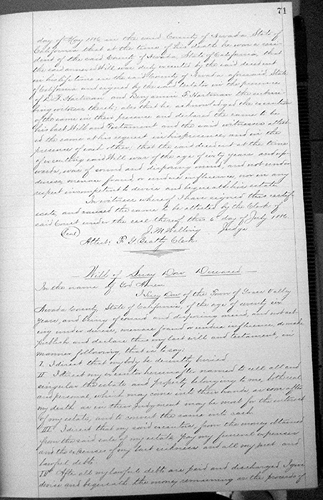 71
day of May 1886 in the said County of Nevada State of
California that at the time of his death he was a resi
dent of the said County of Nevada, State of California, that
the said annexed Will was duly executed by the said decedent
in his life time in the said County of Nevada aforesaid, State
of California and signed by the said testator in the presence
of
the same in their presence and declared the same to be
his last Will and Testament and the said witnesses attest
ed the same at his request in his presence and in the
presence of each other that the said decedent at the time
of executing said Will was of the age of sixty years and up
wards, was of sound and disposing mind, and not under
duress, menace, fraud or undue influence, nor in any
respect incompetent to devise and bequeath his estate
In witness whereof I have signed this certifi
cate, and caused the same to be attested by the Clerk of
said Court under the seal thereof this day of July 1886
Seal
Judge
Attest: Clerk
Will of Deceased
In the name of God Amen
I of the Town of Grass Valley
Nevada County, State of California, of the age of years
and being of sound and disposing mind, and not act
ing under duress, menace fraud or undue influence do make
publish and declare this my last will and testament, in
manner following that is to say:
I I direct that my body be decently buried
II I direct my executor hereinafter named to sell all and
singular the estate and property belonging to me, both real
and personal, which may come into their hands as soon after
my death as in their judgment may be most for the interest
of my estate, and to convert the same into cash
III I direct that my said executors, from the money obtained
from the said sale of my estate pay my funeral expenses
and the expenses of my last sickness and all my just and
lawful debts
IV After all my lawful debts are paid and discharged I give
devise and bequeath the money remaining in the proceeds of